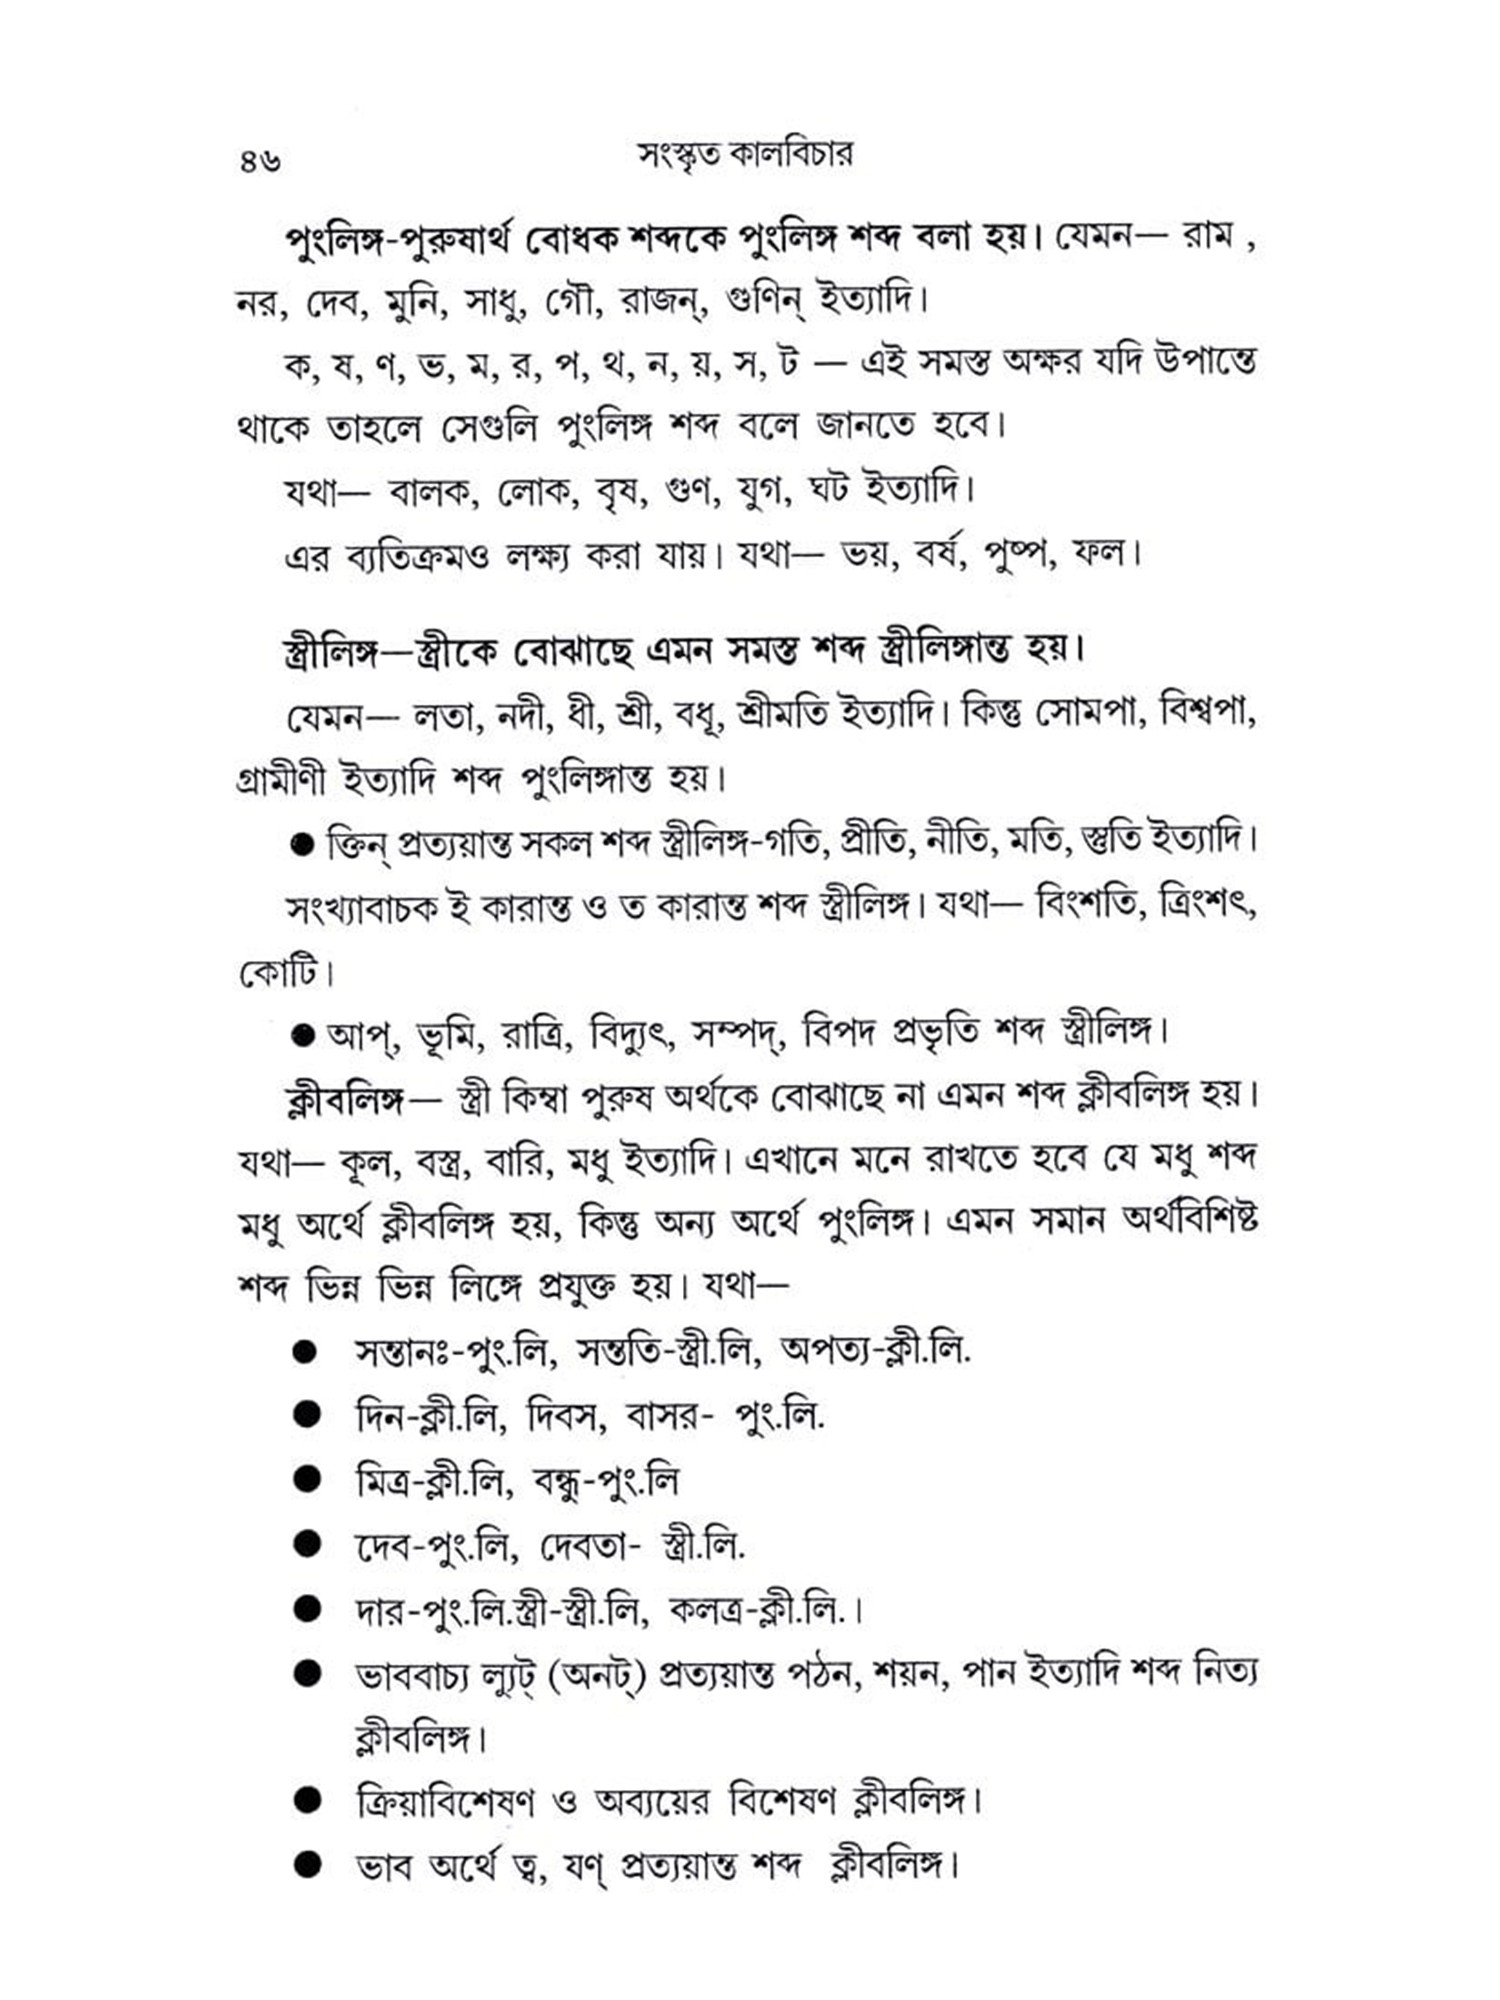 ৪৬ সংস্কৃত কালবিচার
পুংলিঙ্গ-পুরুষার্থ বোধক শব্দকে পুংলিঙ্গ শব্দ বলা হয়। যেমন— রাম ,
নর, দেব, মুনি, সাধু, গৌ, রাজন্, গুণিন্ ইত্যাদি।
ক, ষ, ণ, ভ, ম, র, প, থ, ন, য়, স, ট — এই সমস্ত অক্ষর যদি উপান্তে
থাকে তাহলে সেগুলি পুংলিঙ্গ শব্দ বলে জানতে হবে।
যথা— বালক, লোক, বৃষ, গুণ, যুগ, ঘট ইত্যাদি।
এর ব্যতিক্রমও লক্ষ্য করা যায়। যথা— ভয়, বর্ষ, পুষ্প, ফল।
স্ত্রীলিঙ্গ—স্ত্রীকে বোঝাছে এমন সমস্ত শব্দ স্ত্রীলিঙ্গান্ত হয়।
যেমন— লতা, নদী, ধী, শ্রী, বধূ, শ্রীমতি ইত্যাদি। কিন্তু সোমপা, বিশ্বপা,
গ্রামীণী ইত্যাদি শব্দ পুংলিঙ্গান্ত হয়।
● ক্তিন্ প্রত্যয়ান্ত সকল শব্দ স্ত্রীলিঙ্গ-গতি, প্রীতি, নীতি, মতি, স্তুতি ইত্যাদি।
সংখ্যাবাচক ই কারান্ত ও ত কারান্ত শব্দ স্ত্রীলিঙ্গ। যথা— বিংশতি, ত্রিংশৎ,
কোটি।
● আপ্, ভূমি, রাত্রি, বিদ্যুৎ, সম্পদ্, বিপদ প্রভৃতি শব্দ স্ত্রীলিঙ্গ।
ক্লীবলিঙ্গ— স্ত্রী কিম্বা পুরুষ অর্থকে বোঝাছে না এমন শব্দ ক্লীবলিঙ্গ হয়।
যথা— কূল, বস্ত্র, বারি, মধু ইত্যাদি। এখানে মনে রাখতে হবে যে মধু শব্দ
মধু অর্থে ক্লীবলিঙ্গ হয়, কিন্তু অন্য অর্থে পুংলিঙ্গ। এমন সমান অর্থবিশিষ্ট
শব্দ ভিন্ন ভিন্ন লিঙ্গে প্রযুক্ত হয়। যথা—
● সন্তানঃ-পুং.লি, সন্ততি-স্ত্রী.লি, অপত্য-ক্লী.লি.
● দিন-ক্লী.লি, দিবস, বাসর- পুং.লি.
● মিত্র-ক্লী.লি, বন্ধু-পুং.লি
● দেব-পুং.লি, দেবতা- স্ত্রী.লি.
● দার-পুং.লি.স্ত্রী-স্ত্রী.লি, কলত্র-ক্লী.লি.।
● ভাববাচ্য ল্যুট্ (অনট্) প্রত্যয়ান্ত পঠন, শয়ন, পান ইত্যাদি শব্দ নিত্য
ক্লীবলিঙ্গ।
● ক্রিয়াবিশেষণ ও অব্যয়ের বিশেষণ ক্লীবলিঙ্গ।
● ভাব অর্থে ত্ব, যণ্ প্রত্যয়ান্ত শব্দ ক্লীবলিঙ্গ।